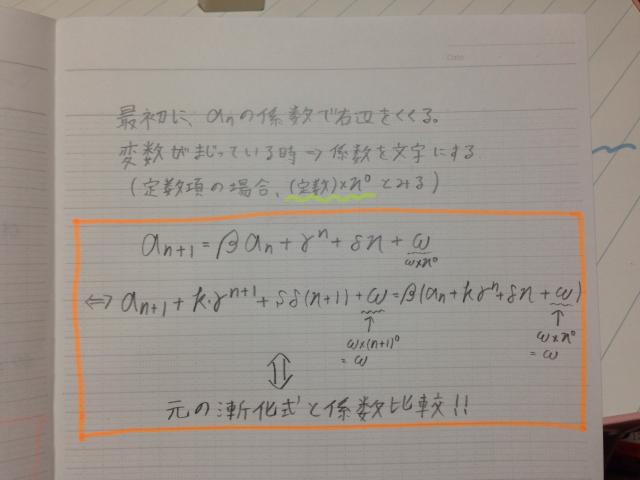 Date
最初に、αnの係数で右辺をくくる。
変数がまじっている時⇒係数を文字にする
(定数項の場合、(定数)×n⁰とみる)
αn+1 = βαn + γⁿ + δn + ω
ω×n⁰
⇔ αn+1 + k・γⁿ⁺¹ + δ(n+1) + ω = β(αn + kγⁿ + δn + ω)
↑ ↑
ω×(n+1)⁰ ω×n⁰
= ω = ω
⇕
元の漸化式と係数比較!!